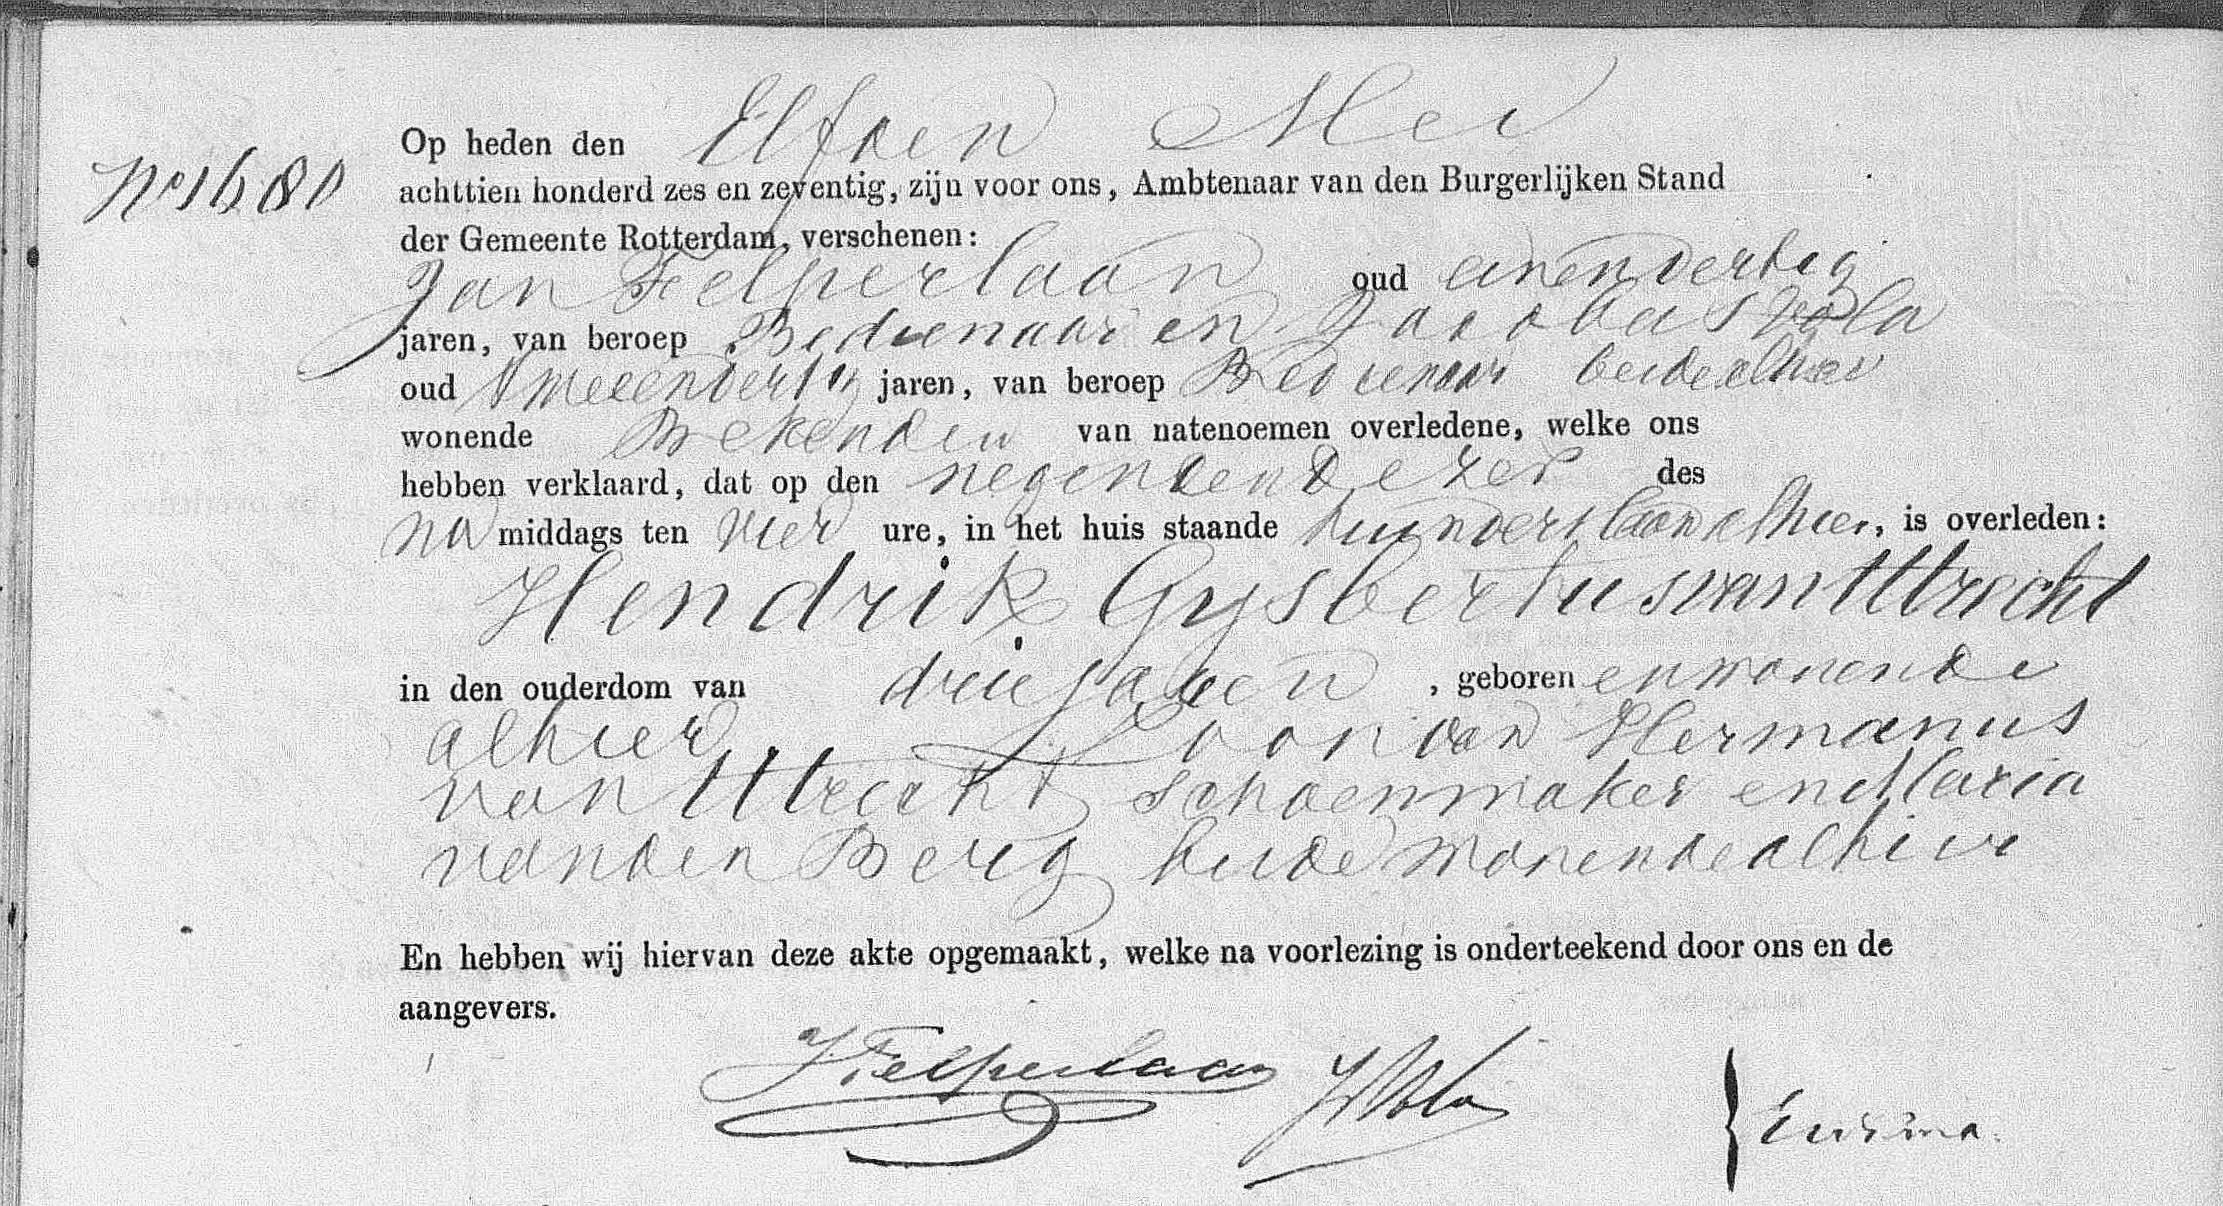 Op heden den Elfden Mei
No 1680 achttien honderd zes en zeventig, zijn voor ons, Ambtenaar van den Burgerlijken Stand
der Gemeente Rotterdam, verschenen:
Jan Felperlaan oud eenendertig
jaren, van beroep Bedienaar en Jacobus Vola
oud tweeendertig jaren, van beroep Bedienaar beide alhier
wonende Bekenden van natenoemen overledene, welke ons
hebben verklaard, dat op den negenden dezer des
na middags ten vier ure, in het huis staande alhier, is overleden:
Hendrik Gysbertus van Utrecht
in den ouderdom van drie jaren, geboren en wonende
alhier Zoon van Hermanus
van Utrecht schoenmaker en Maria
van den Berg beide wonende alhier
En hebben wij hiervan deze akte opgemaakt, welke na voorlezing is onderteekend door ons en de
aangevers.
J Felperlaan J Vola